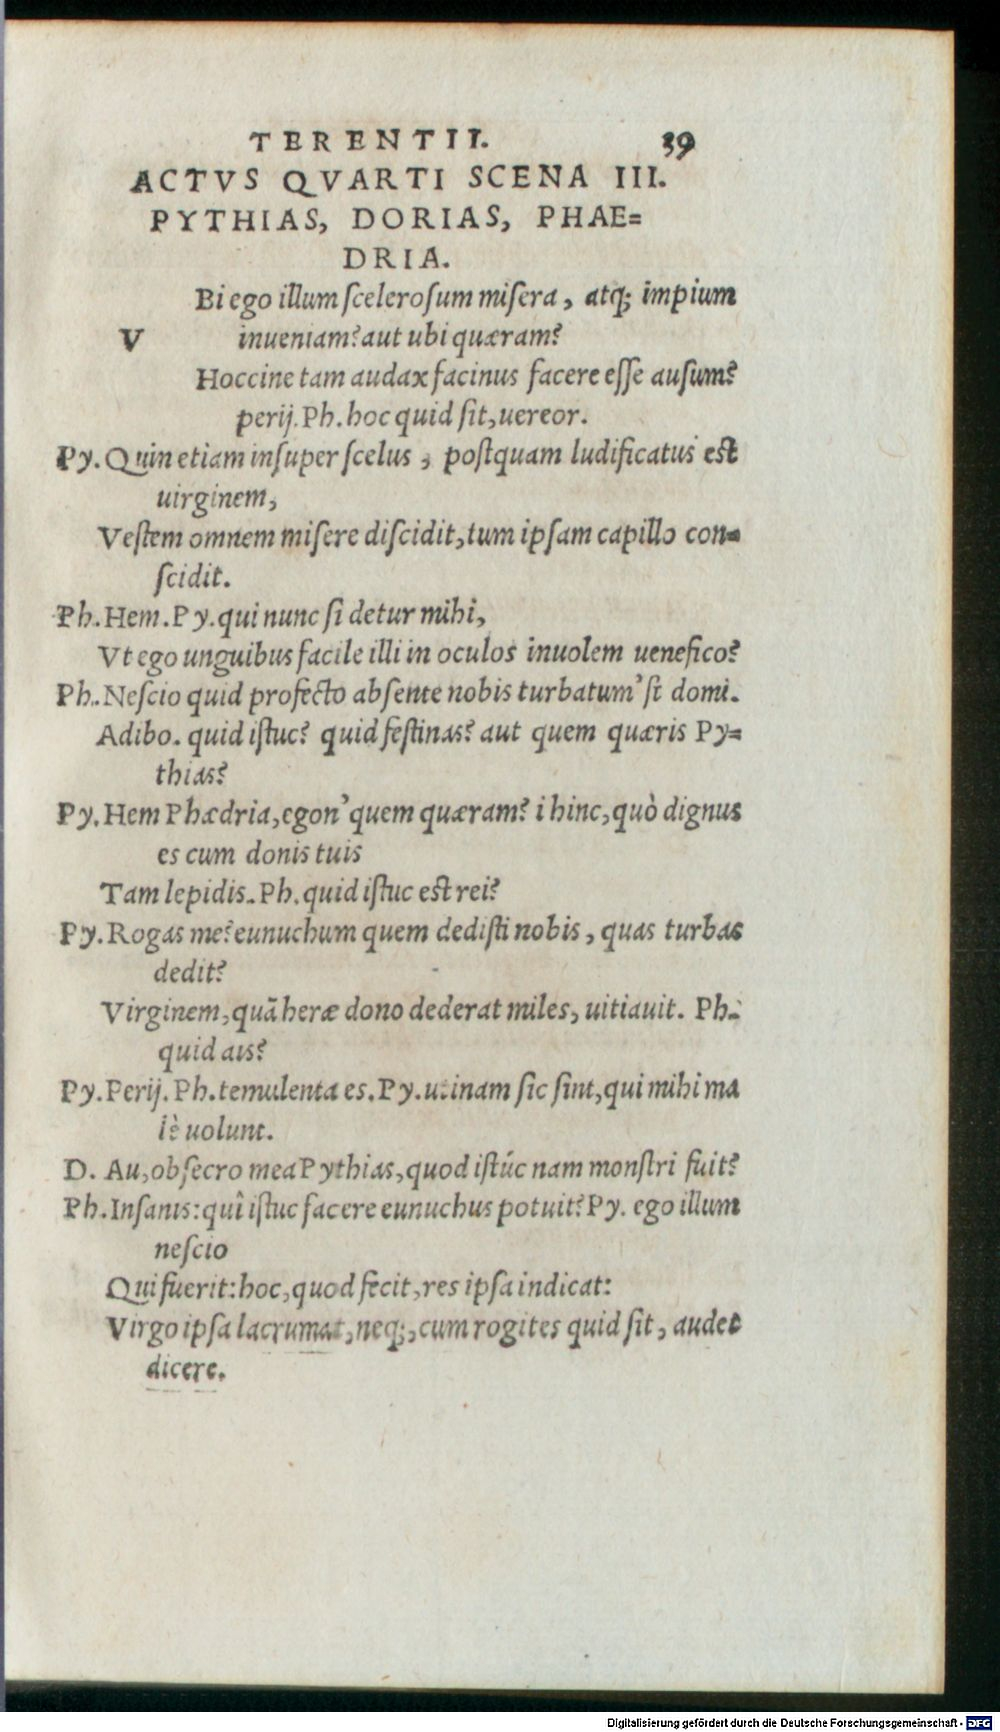 TERENTII. 39
ACTVS QVARTI SCENA III.
PYTHIAS, DORIAS, PHAE=
DRIA.
Bi ego illum scelerosum misera, atq; impium
V inueniam? aut ubi quæram?
Hoccine tam audax facinus facere esse ausum?
perij. Ph. hoc quid sit, uereor.
Py. Quin etiam insuper scelus, postquam ludificatus est
uirginem,
Vestem omnem misere discidit, tum ipsam capillo con=
scidit.
Ph. Hem. Py. qui nunc si detur mihi,
Vt ego unguibus facile illi in oculos inuolem uenefico?
Ph. Nescio quid profecto absente nobis turbatum'st domi.
Adibo. quid istuc? quid festinas? aut quem quæris Py=
thias?
Py. Hem Phædria, egon' quem quæram? i hinc, quò dignus
es cum donis tuis
Tam lepidis. Ph. quid istuc est rei?
Py. Rogas me? eunuchum quem dedisti nobis, quas turbas
dedit?
Virginem, quā heræ dono dederat miles, uitiauit. Ph.
quid ais?
Py. Perij. Ph. temulenta es. Py. utinam sic sint, qui mihi ma
lè uolunt.
D. Au, obsecro mea Pythias, quod istúc nam monstri fuit?
Ph. Insanis: quî istuc facere eunuchus potuit? Py. ego illum
nescio
Qui fuerit: hoc, quod fecit, res ipsa indicat:
Virgo ipsa lacrumat, neq;, cum rogites quid sit, audet
dicere.
Digitalisierung gefördert durch die Deutsche Forschungsgemeinschaft - DFG